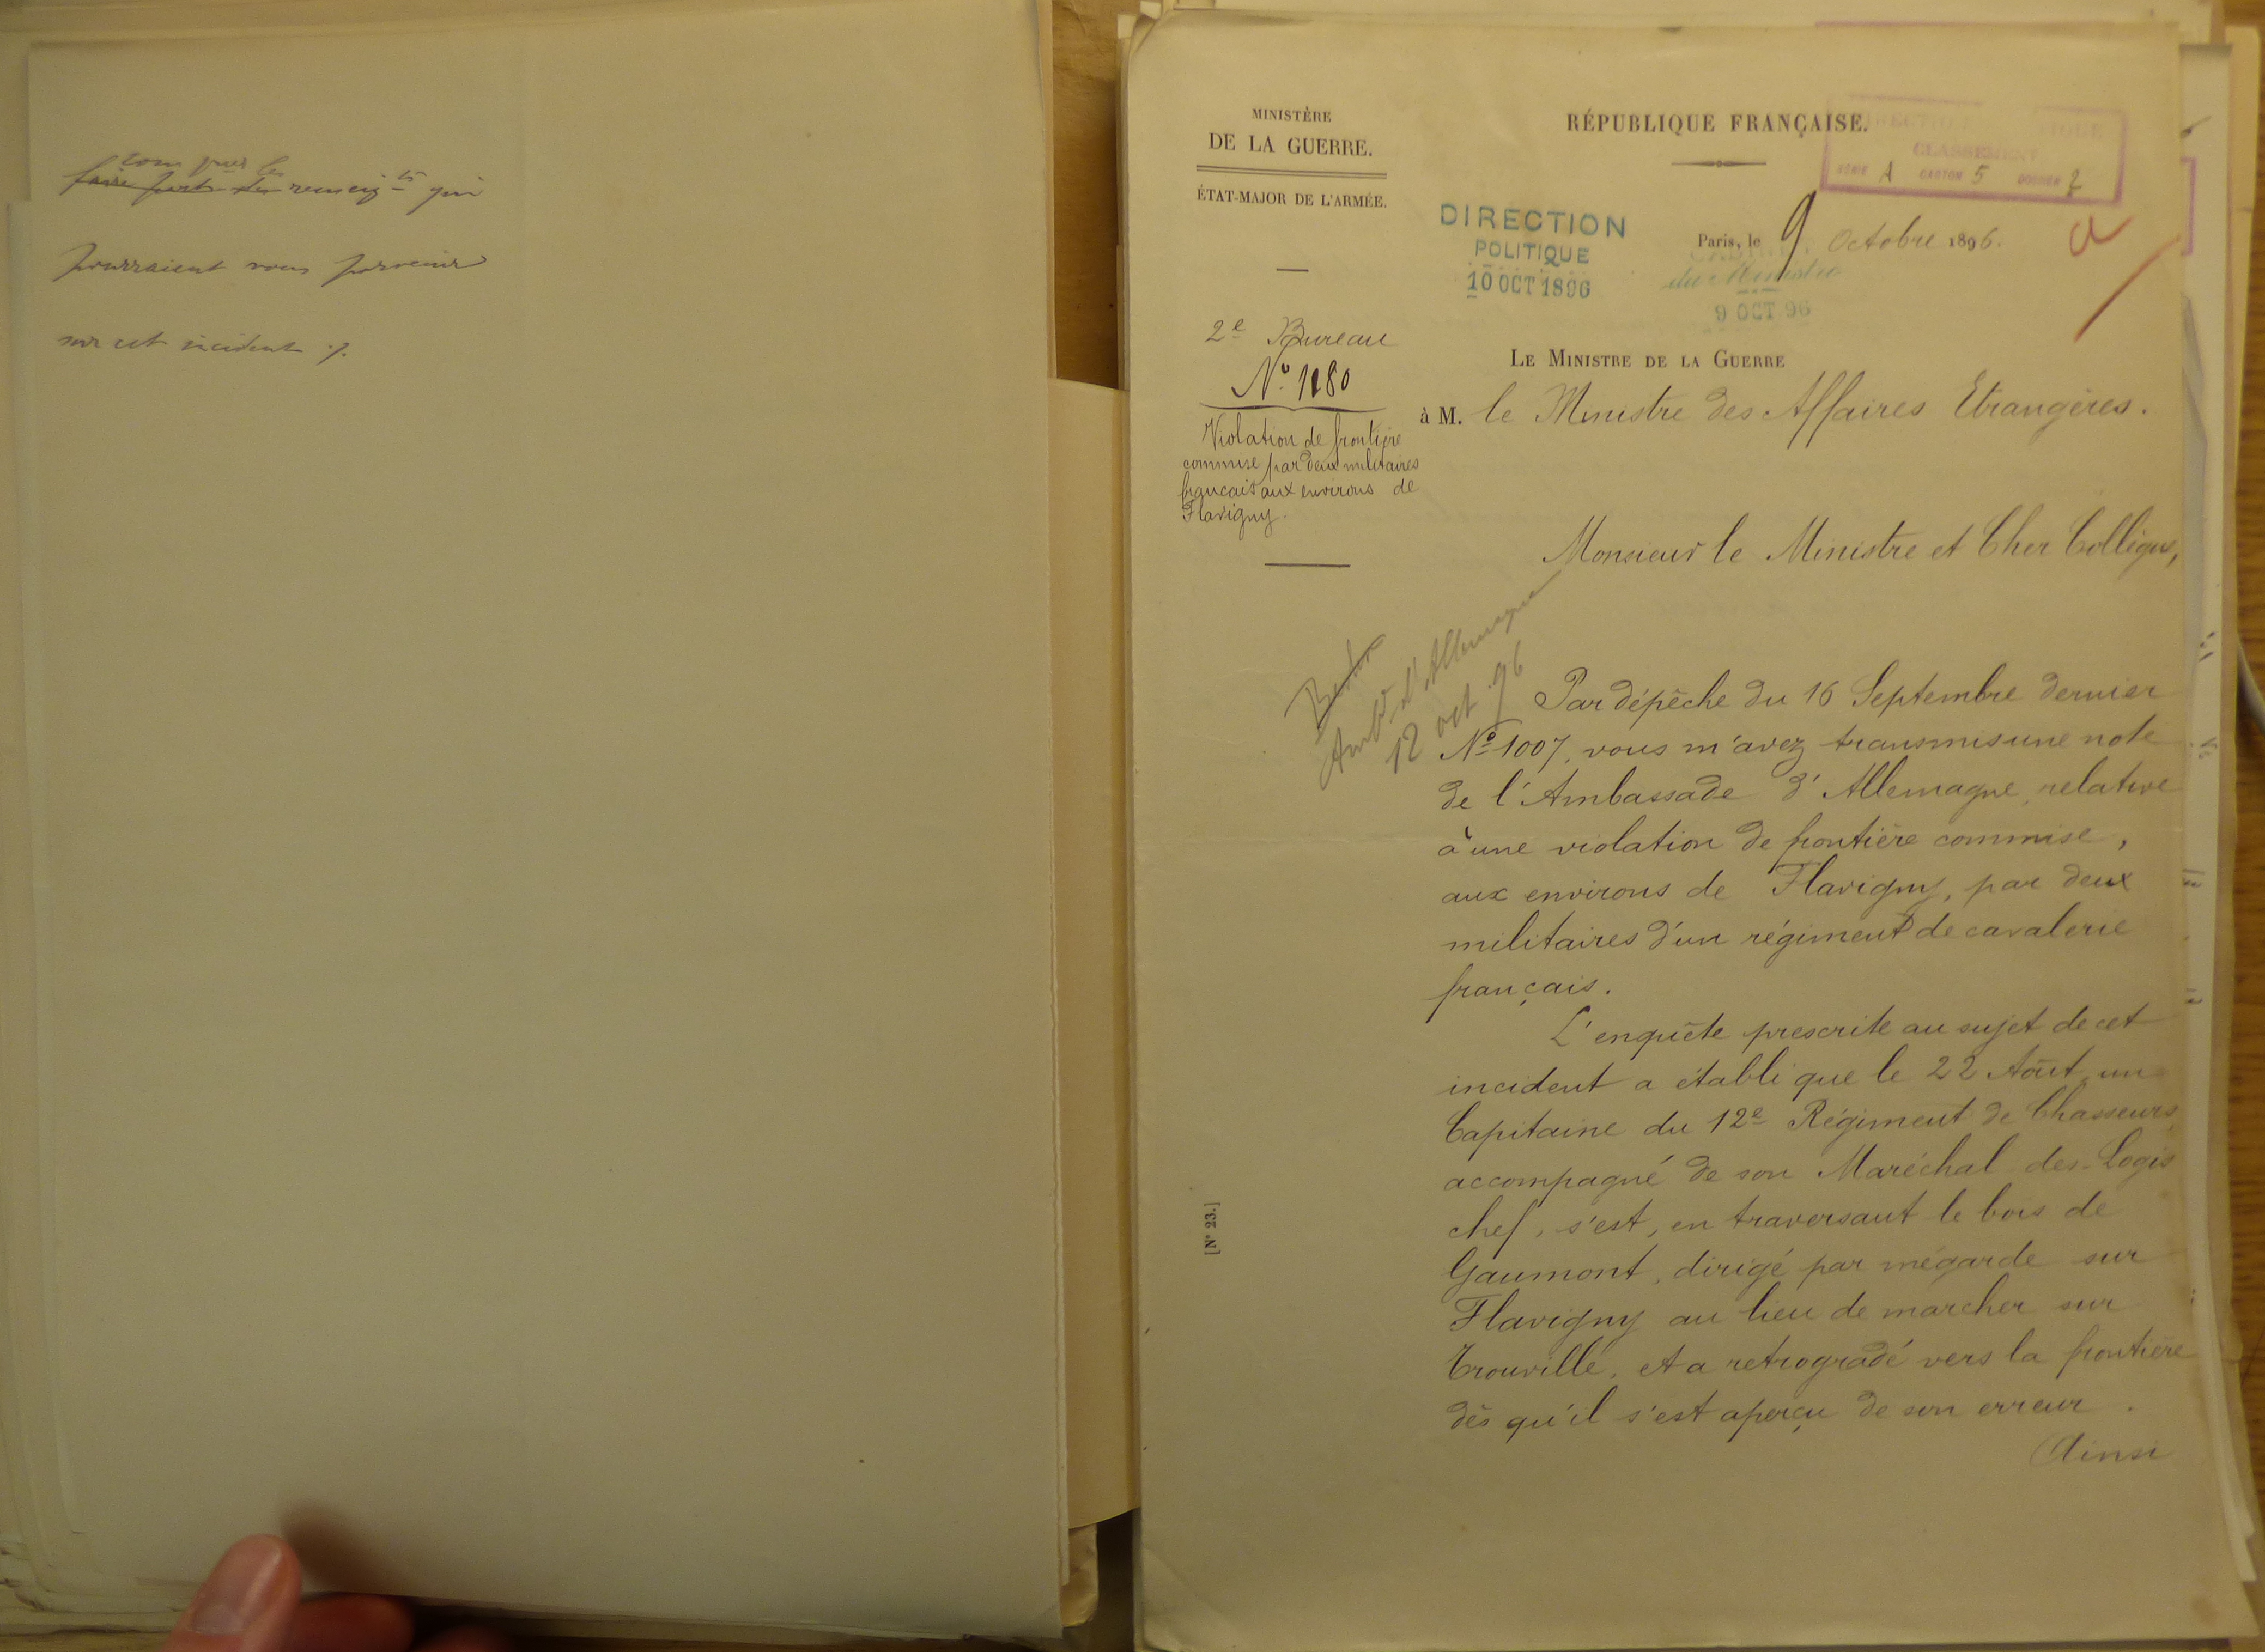 renseig^ts qui
pourraient vous parvenir
sur cet incident ./.
MINISTÈRE
DE LA GUERRE.
ÉTAT-MAJOR DE L'ARMÉE.
2e Bureau
N° 1180
Violation de frontière
commise par deux militaires
français aux environs de
Flavigny.
RÉPUBLIQUE FRANÇAISE.
CLASSEMENT
SÉRIE A CARTON 5 DOSSIER 2
DIRECTION
POLITIQUE
10 OCT 1896
Paris, le 9 Octobre 1896.
du Ministre
9 OCT 96
LE MINISTRE DE LA GUERRE
à M. le Ministre des Affaires Etrangères.
Monsieur le Ministre et Cher Collègue,
Ambde d'Allemagne
12 oct. 96
Par dépêche du 16 Septembre dernier
N° 1007, vous m'avez transmis une note
de l'Ambassade d'Allemagne, relative
à une violation de frontière commise,
aux environs de Flavigny, par deux
militaires d'un régiment de cavalerie
français.
L'enquête prescrite au sujet de cet
incident a établi que le 22 Août, un
Capitaine du 12e Régiment de Chasseurs,
accompagné de son Maréchal des-Logis
chef, s'est, en traversant le bois de
Gaumont, dirigé par mégarde sur
Flavigny au lieu de marcher sur
Trouville, et a retrogradé vers la frontière
dès qu'il s'est aperçu de son erreur.
Ainsi
[N° 23.]